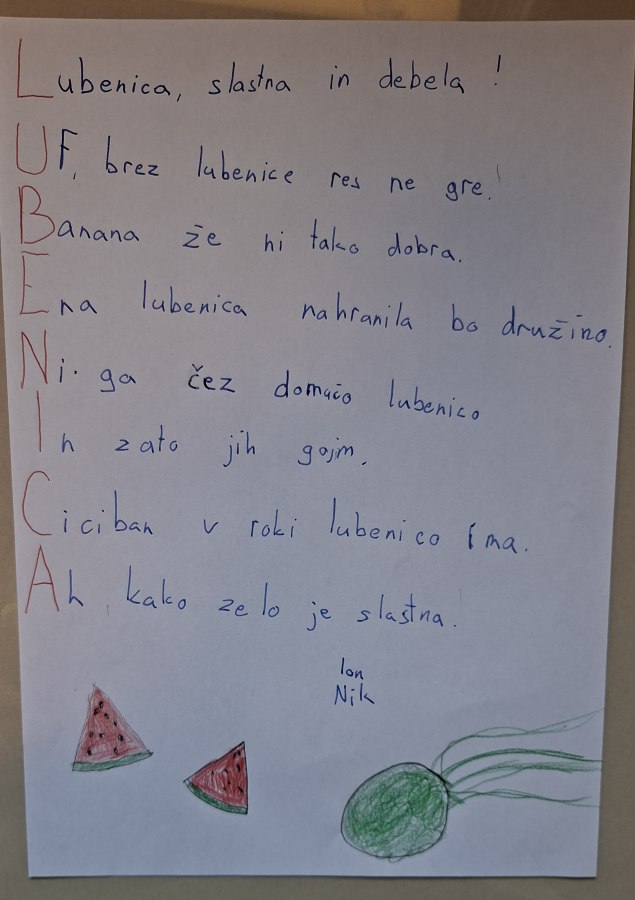 Lubenica, slastna in debela!
UF, brez lubenice res ne gre!
Banana že ni tako dobra.
Ena lubenica nahranila bo družino.
Ni ga čez domačo lubenico
In zato jih gojm.
Ciciban v roki lubenico ima.
Ah, kako zelo je slastna.
Ion
Nik